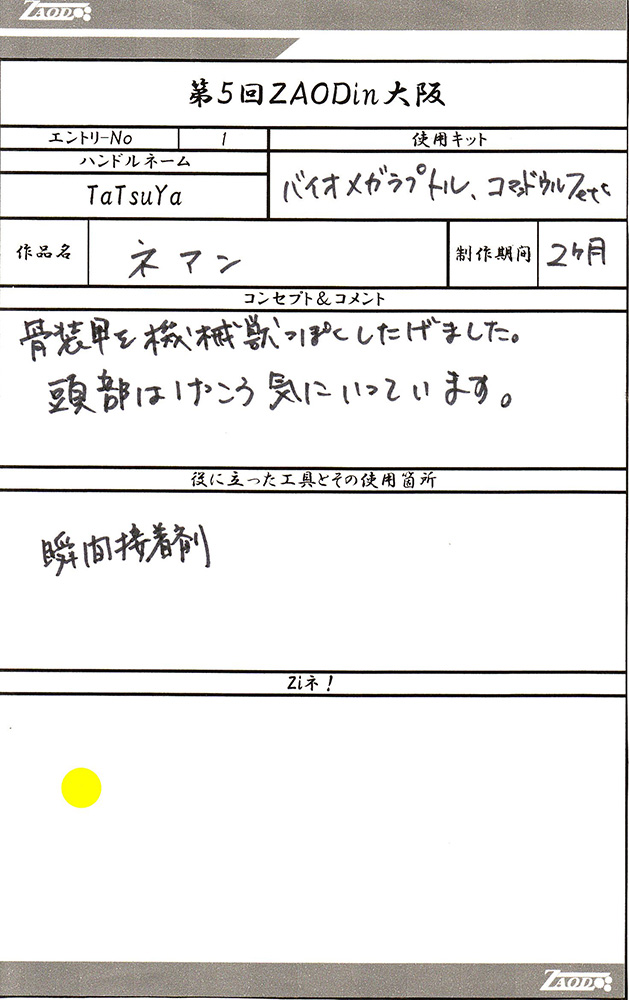 ZAOD
第5回ZAODin大阪
エントリーNo
1
使用キット
ハンドルネーム
TaTsuYa
バイオメガラプトル、コマンドウルフetc
作品名
ネアン
制作期間
2ヶ月
コンセプト&コメント
骨装甲を機械獣っぽくしたげました。
頭部はけっこう気にいっています。
役に立った工具とその使用箇所
瞬間接着剤
Ziネ!
ZAOD